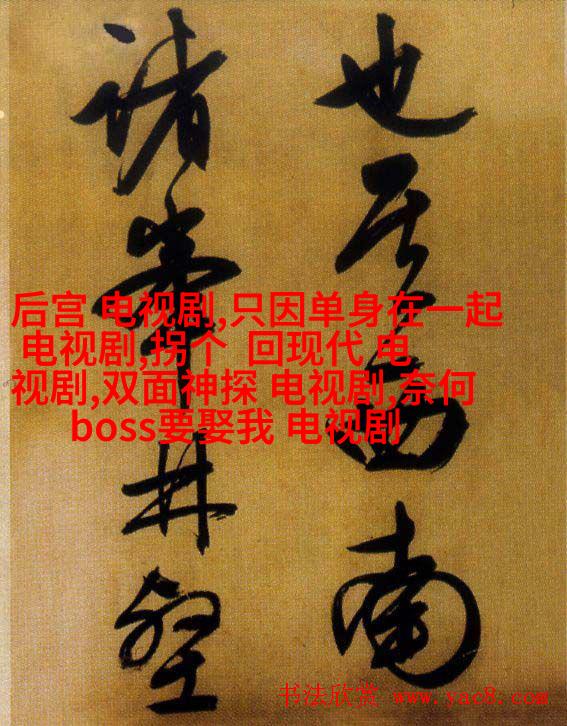 也其西南
諸峯林壑
后宫 电视剧,只因单身在一起
电视剧,拐个 回现代 电
视剧,双面神探 电视剧,奈何
boss要娶我 电视剧
书法欣赏 www.yac8.com